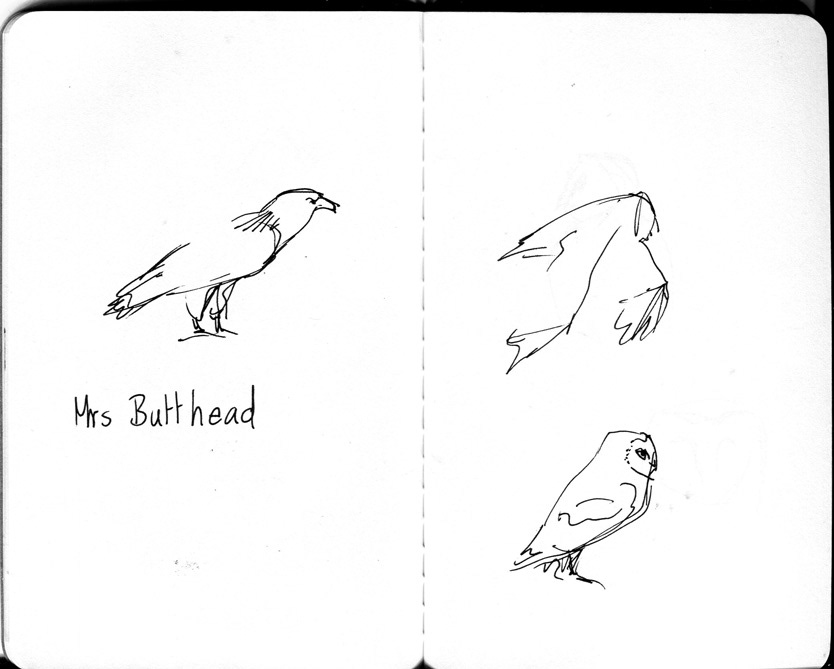 Mrs Butthead